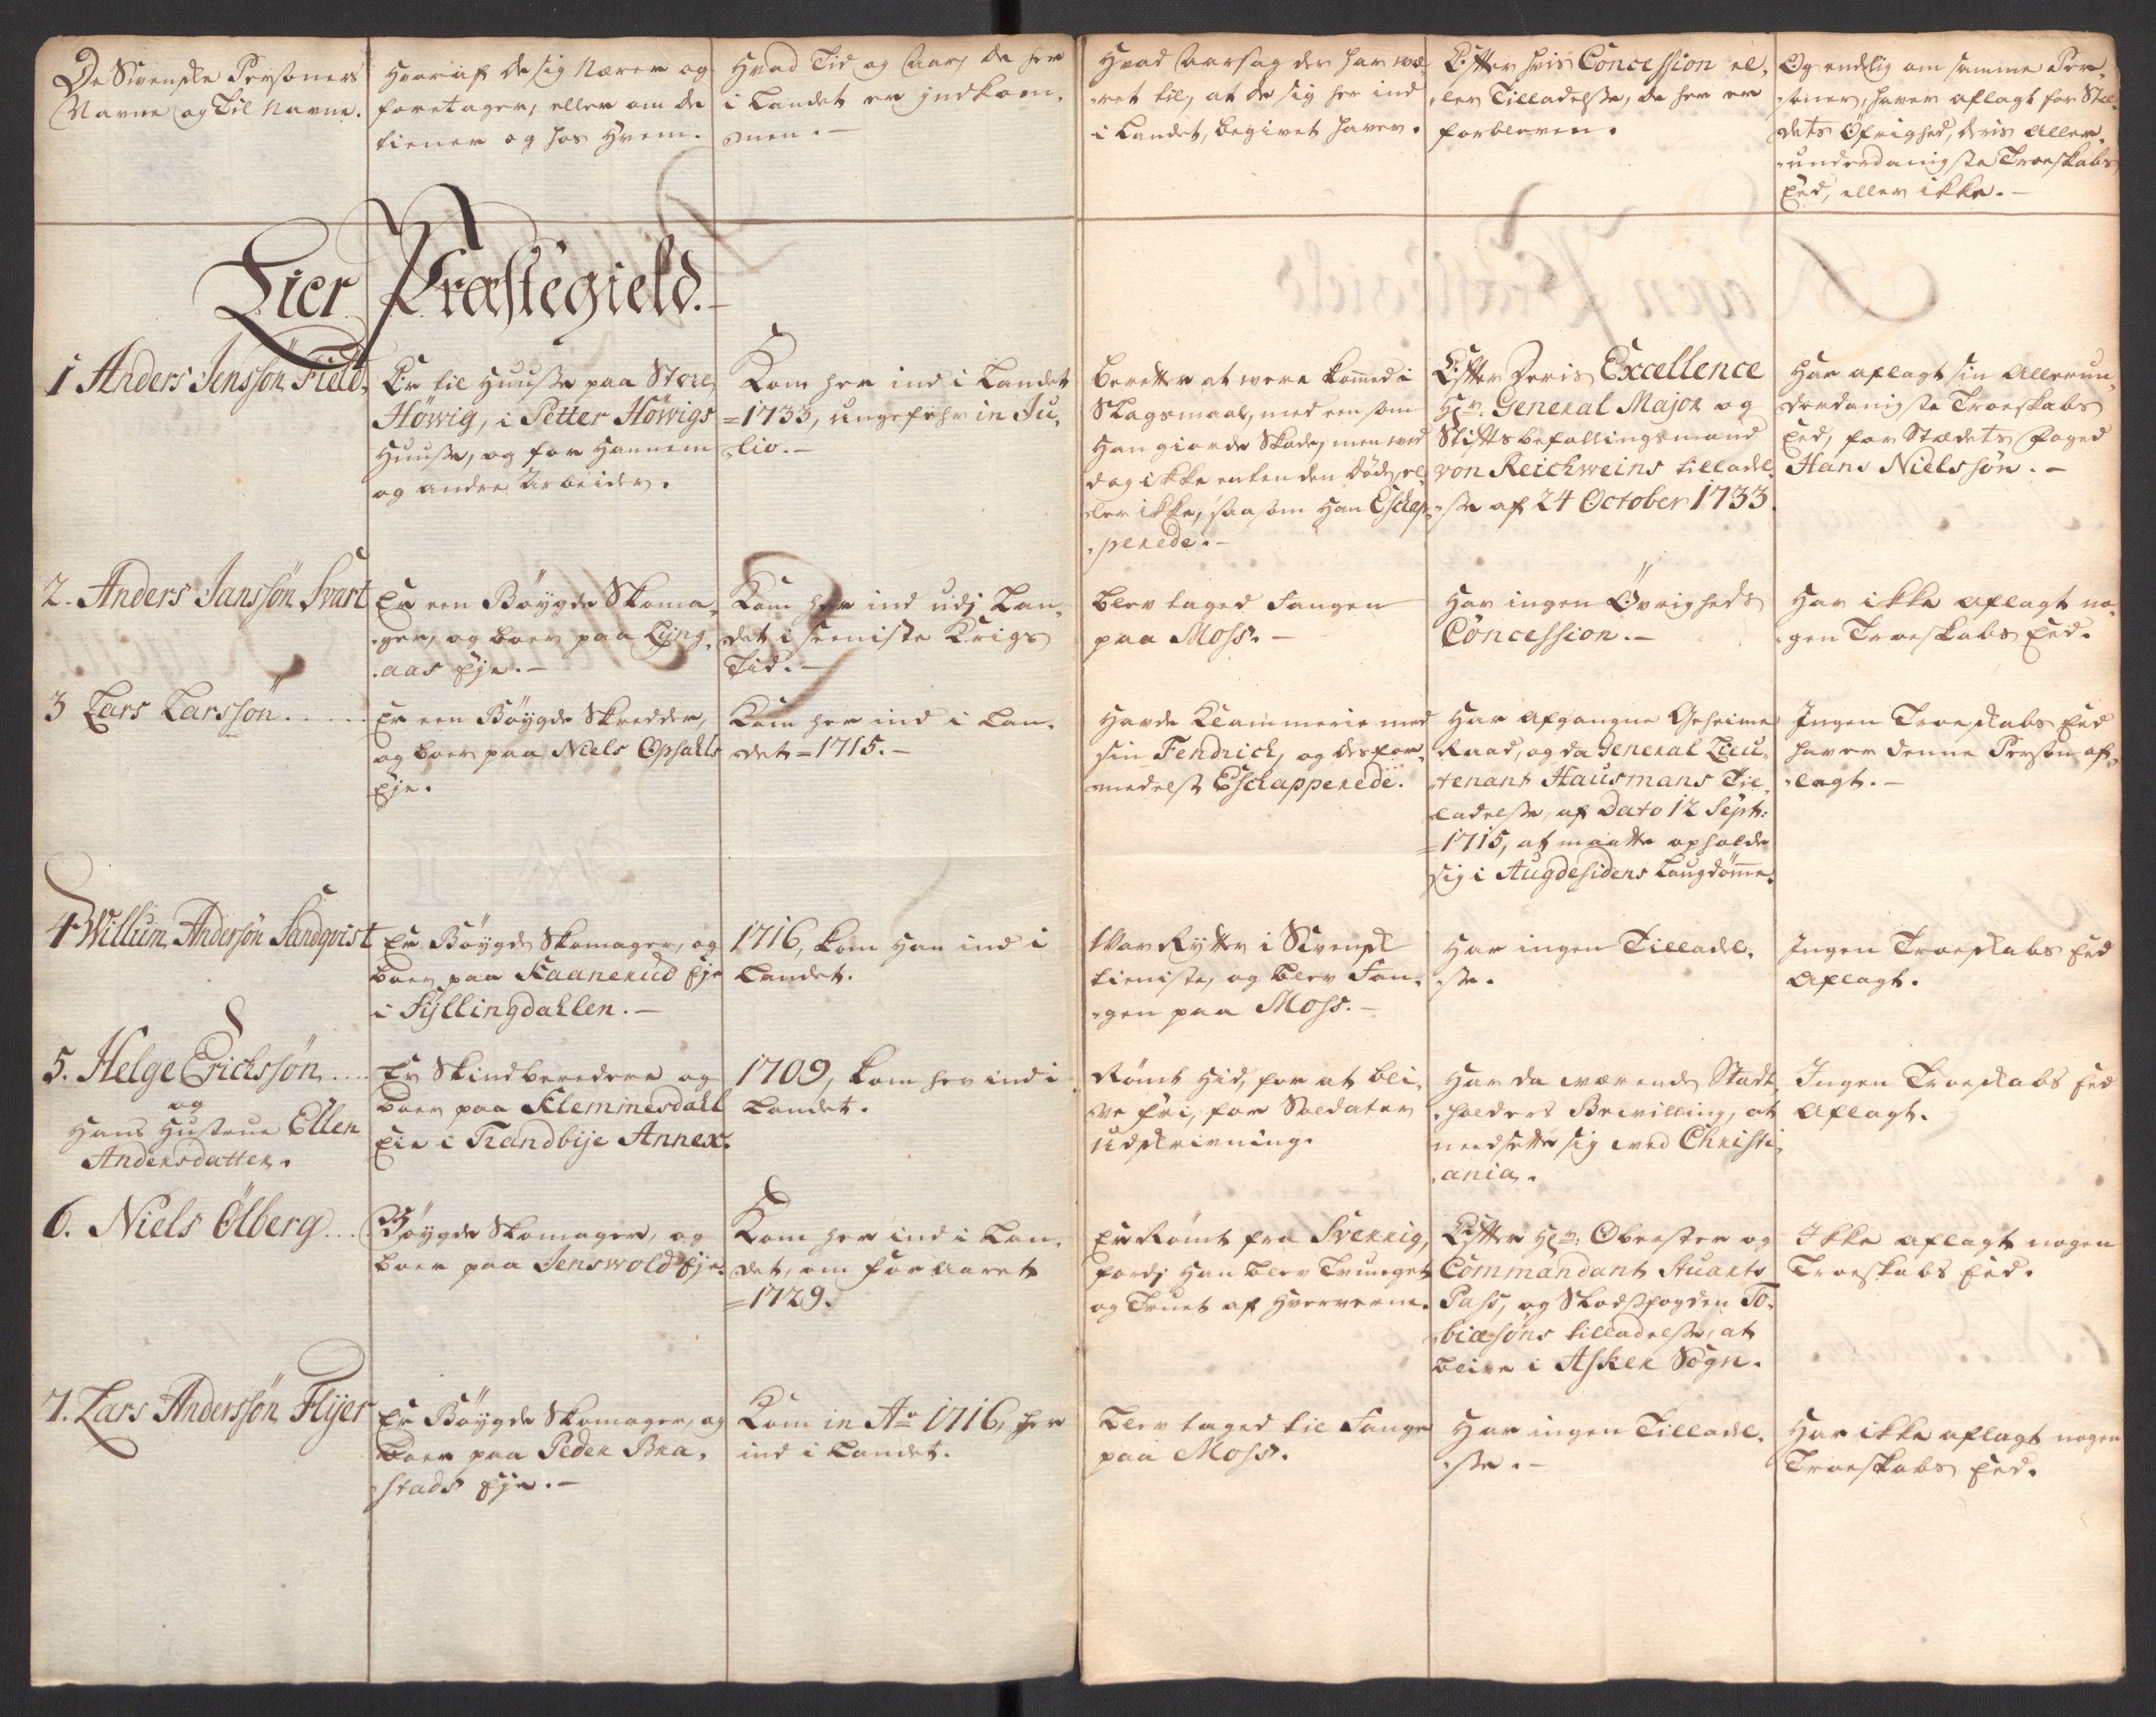 De Svenske Persohners
Navne og Til Navne.
Hvoraf de sig Nærer og
foretager, eller om de
tiener og hos Hvem.
Hvad Tid og Aar, de her
i Landet er indkom-
men.-
Hvad Aarsag der har væ-
ret til, at de sig her ind
i Landet, begivet haver.
Efter hvis Concession el-
ler Tilladelsse, de her er
forbleven.
Og endelig om samme Per-
soner, haver aflagt for Stæ-
dets Öfrighed, deris Aller-
underdanigste Troeskabs
Eed, eller ikke.-
Lier Præstegield.-
1 Anders Jenssön Field,
Er til Huusse paa Store
Höwig, i Petter Höwigs
Huusse, og for Hannem
og andre Arbeider.
Kom her ind i Landet
=1733, ungefehr in Ju-
lio.-
Beretter at were kommed i
Slagsmaal, med een som
Han giorde Skade, men ved
dog ikke enten den döde, el-
ler ikke, saasom Han Eschap-
perede.-
Efter Deris Excellence
Hr. General Major og
Stiftsbefallingsmand
von Reichweins tilladel-
sse af 24 October 1733.
Har aflagt sin Allerun-
derdanigste Troeskabs
Eed, for Stædets Foged
Hans Nielssön.-
2. Anders Janssön Svart
Er een Böygde Skoma-
ger, og boer paa Lyng-
aas Eje.-
Kom her ind udj Lan-
det i seeniste Krigs
Tid.-
Blev taged Fangen
paa Moss.-
Har ingen Övrigheds
Concession.-
Har ikke aflagt no-
gen Troeskabs Eed.
3 Lars Larssön.....
Er een Böygde Skredder,
og boer paa Niels Opsahls
Eje.
Kom her ind i Lan-
det =1715.-
Havde Klammerie med
sin Fendrich, og desfor-
medelst Eschapperede.
Har afgangne Geheime
Raad, og da General Lieu-
tenant Hausmans Til-
ladelsse, af Dato 12 Sept:
=1715, at maatte opholde
sig i Augdesidens Laugdömme.
Ingen Troeskabs Eed
haver denne Person af-
lagt.-
4 Willum Andersön Sandqvist
Er Böygde Skomager, og
boer paa Kaanerud Eje
i Sÿllingdahlen.-
1716, kom Han ind i
Landet.
War Rytter i Svensk
tieniste, og blev Fan-
gen paa Moss.-
Har ingen Tilladel-
sse.
Ingen Troeskabs Eed
Aflagt.
5. Helge Erichssön....
og
Hans Hustrue Ellen
Andersdatter.
Er Skindberedere og
boer paa Klemmesdahl
Eie i Trandbije Annex.
1709, kom her ind i
Landet.
Römt hid, for at bli-
ve fri, for Soldater
Udskrivning.
Har da værende Stadt-
holders Bevilling, at
needsette sig ved Christi-
ania.
Ingen Troeskabs Eed
Aflagt.
6. Niels Ölberg....
Böygde Skomager, og
boer paa Jenswold Eje.
Kom her ind i Lan-
det, om for Aaret
=1729.
Er Römt fra Sverrig,
fordj Han blev Tvunget
og Truet af Hververne.
Efter Hr. Oberster og
Commandant Stuarts
Pass, og Slodsfogden To-
biæsöns tilladelsse, at
blive i Asker Sogn.
Ikke aflagt nogen
Troeskabs Eed.
7. Lars Anderssön Flÿer
Er Böygde Skomager, og
boer paa Peder Bra-
stads Eje.-
Kom in Ao 1716, her
ind i Landet.
Blev taged til Fange
paa Moss.
Har ingen Tilladel-
sse.-
Har ikke aflagt nogen
Troeskabs Eed.